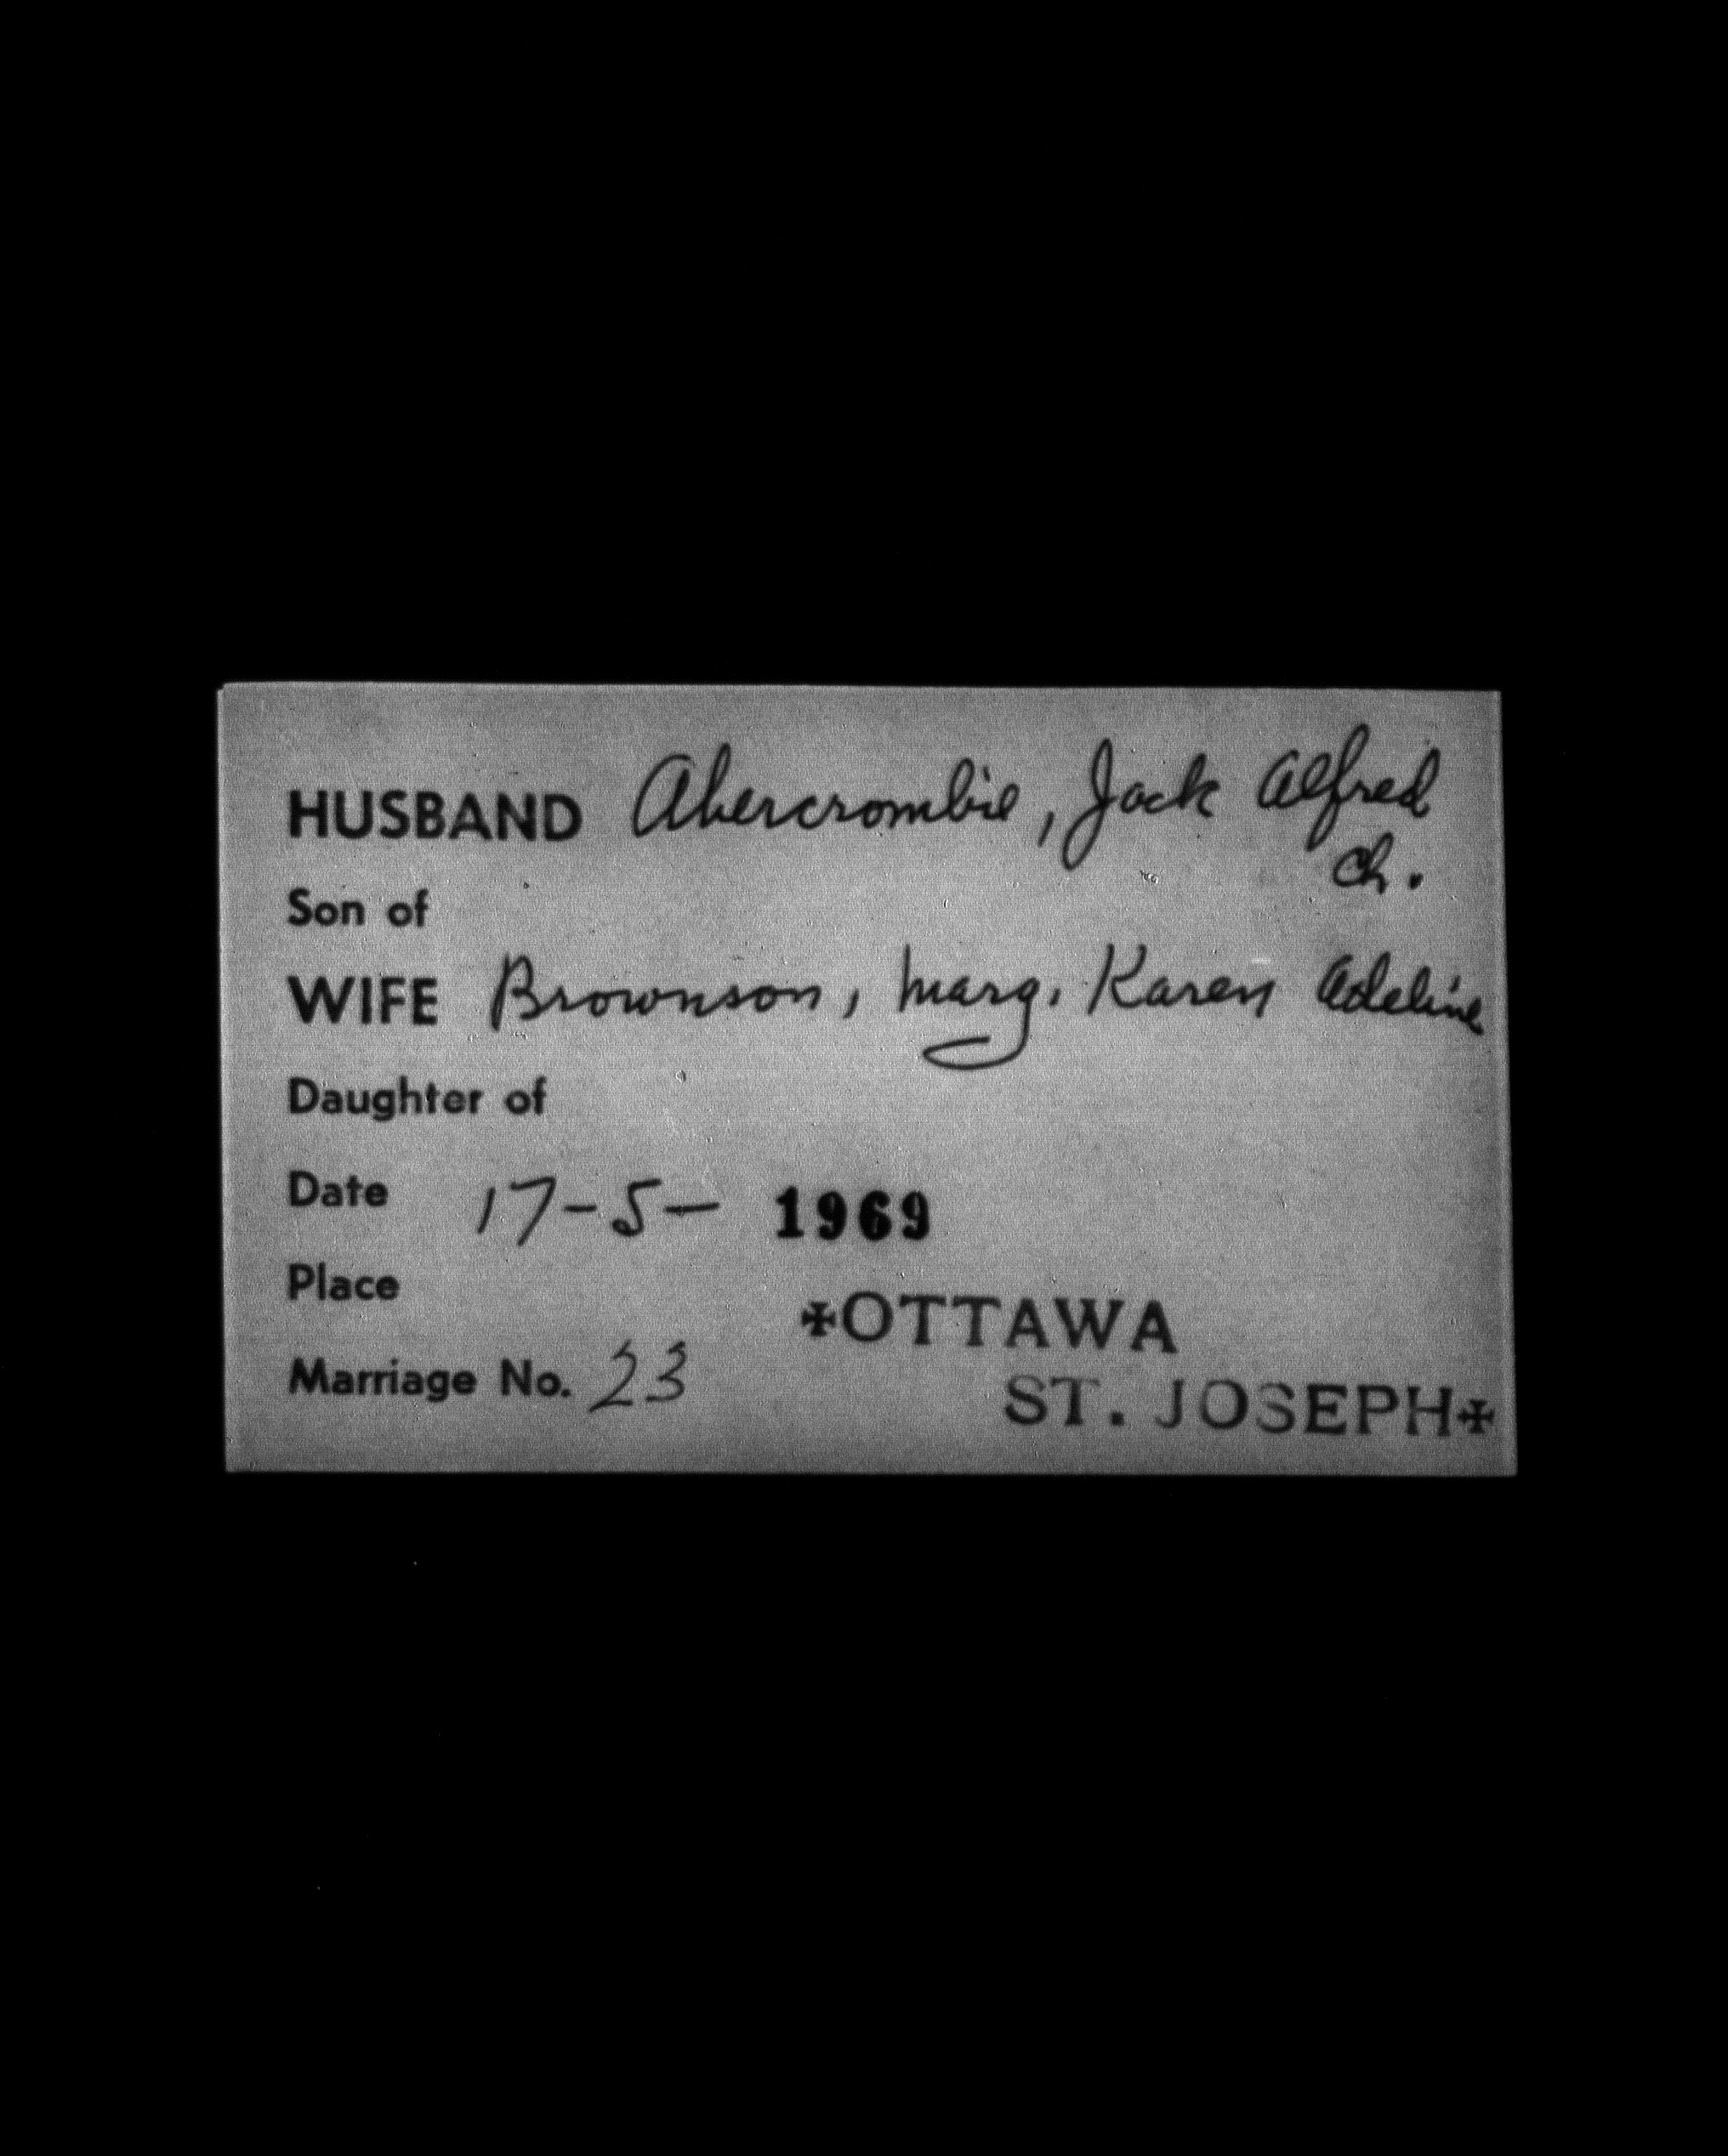 HUSBAND Abercrombie, Jack Alfred
Ch.
Son of
WIFE Brownson, Marg. Karen Adeline
Daughter of
Date 17-5- 1969
Place
✠OTTAWA
Marriage No. 23
ST. JOSEPH✠